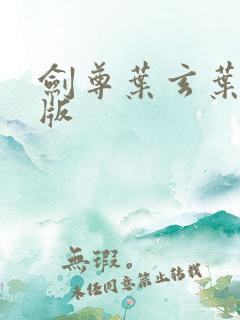 劍尊葉玄葉
版
無瑕。
未经同意禁止转载